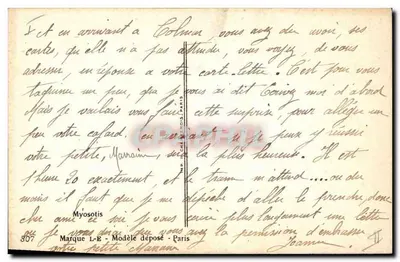 Et en arrivant à Colmar, vous avez dû avoir, ses
cartes, qu'elle n'a pas attendu, vous voyez, de vous
adresser, en réponse à votre carte lettre. C'est pour vous
taquiner un peu, que je vous ai dit mot d'abord
Mais je voulais vous faire cette surprise, pour alléger un
peu votre cafard, en si je peux y réussir
votre petite Marraine, sera la plus heureuse. Il est
1 heure 20 exactement, et le tram m'attend..... ou du
moins il faut que je me dépêche d'aller le prendre, donc
cher ami je vous plus longuement une lettre
ou je vous que vous avez la permission d'embrasser
votre petite Marraine
Jeanne
Myosotis
307 Marque L-E - Modèle déposé - Paris